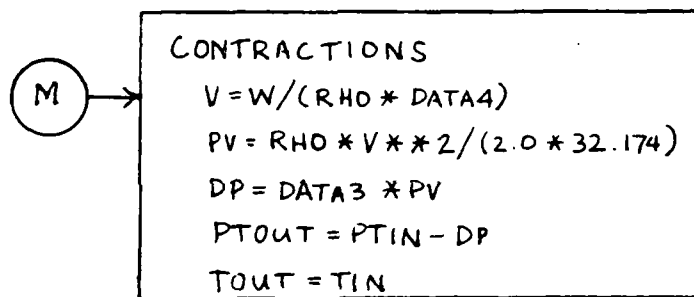 CONTRACTIONS
M
V = W/(RHO * DATA4)
PV = RHO * V * * 2/(2.0 * 32.174)
DP = DATA3 * PV
PTOUT = PTIN - DP
TOUT = TIN